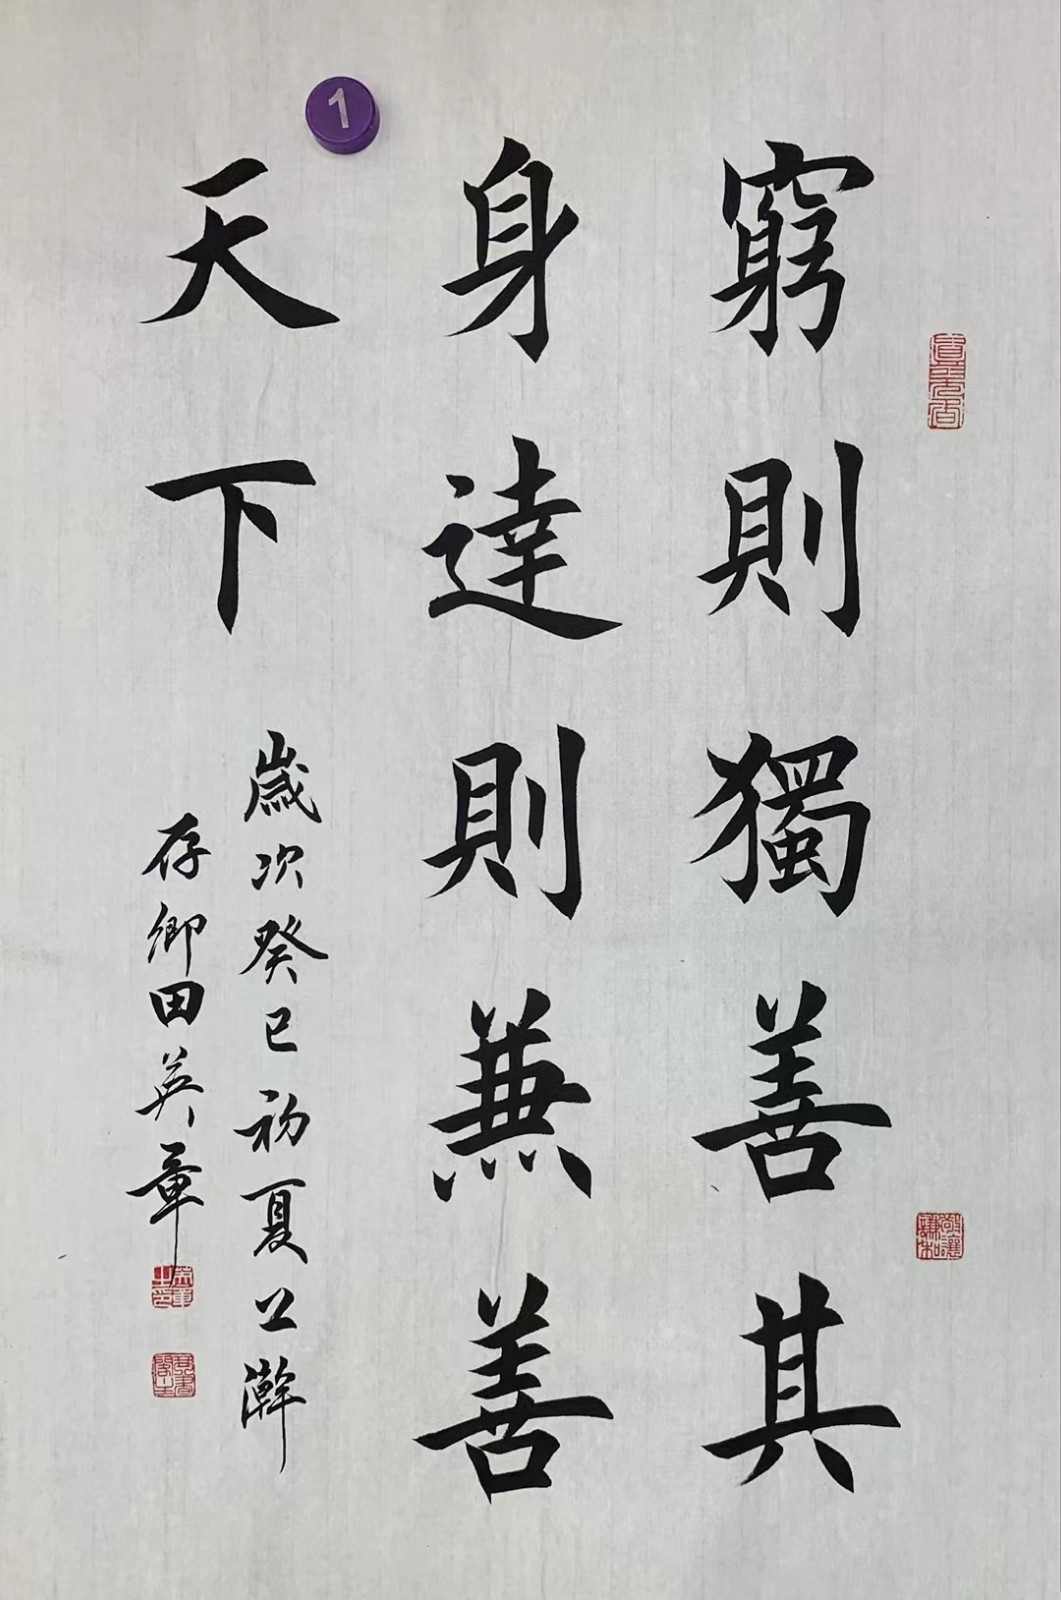 窮則獨善其
身達則兼善
天下
歲次癸巳初夏上澣
存卿田英章
1